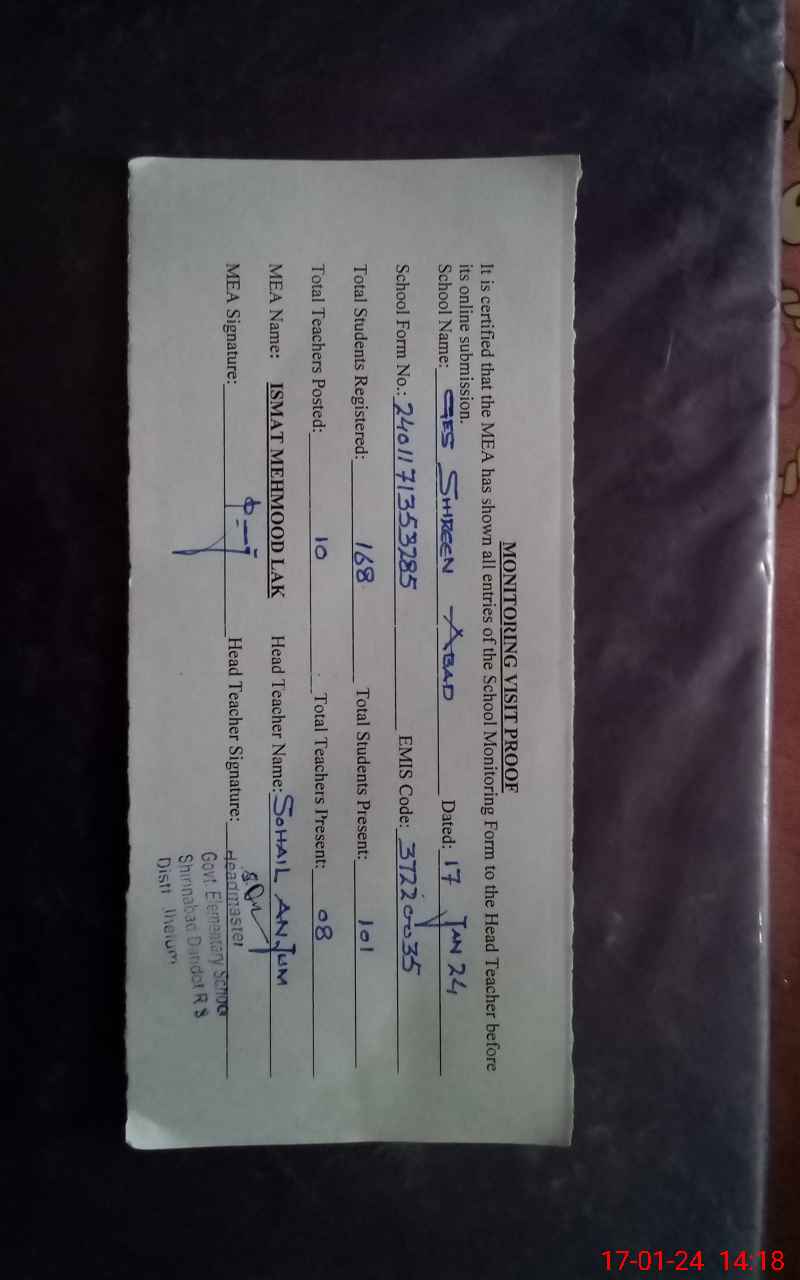 MONITORING VISIT PROOF
It is certified that the MEA has shown all entries of the School Monitoring Form to the Head Teacher before
its online submission.
School Name: GES SHIREEN ABAD Dated: 17 JAN 24
School Form No.: 2401171353285 EMIS Code: 37220035
Total Students Registered: 168 Total Students Present: 101
Total Teachers Posted: 10 Total Teachers Present: 08
MEA Name: ISMAT MEHMOOD LAK Head Teacher Name: SOHAIL ANJUM
MEA Signature: Head Teacher Signature:
Headmaster
Govt Elementary School
Shirinabad Dandot R S
Distt Jhelum
17-01-24 14:18